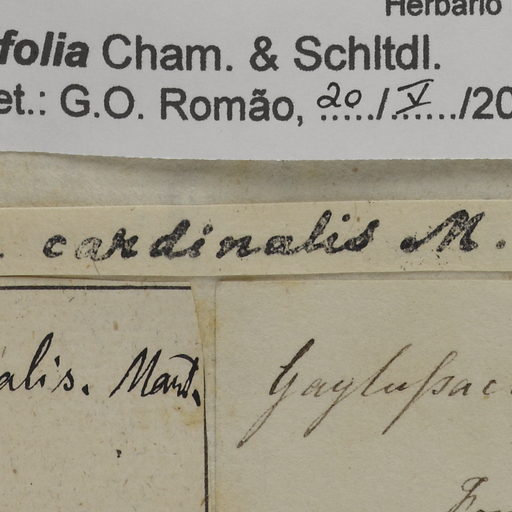 Herbário
folia Cham. & Schltdl.
et.: G.O. Romão, 20/V/20
. cardinalis M.
alis. Mart.
Gaylußac